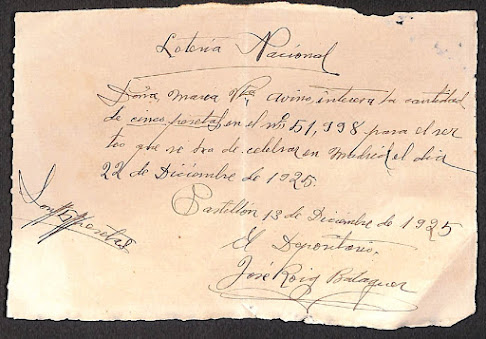 Lotería Nacional
Doña María Avino, interesa la cantidad
de cinco pesetas, en el nº 51,998 para el sor
teo que se ha de celebrar en Madrid el dia
22 de Diciembre de 1925.
Castellón 13 de Diciembre de 1925
El Depositario,
José Roig Balaguer
Son